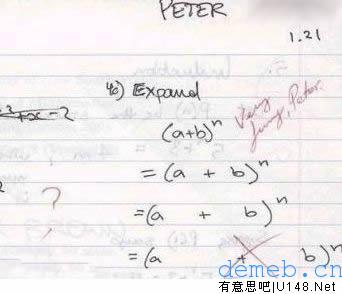 PETER
1.21
4c) Expand
Very funny, Peter.
(a+b)ⁿ
= (a + b)ⁿ
?
= (a + b)ⁿ
= (a + b)ⁿ
demeb.cn
有意思吧|U148.Net